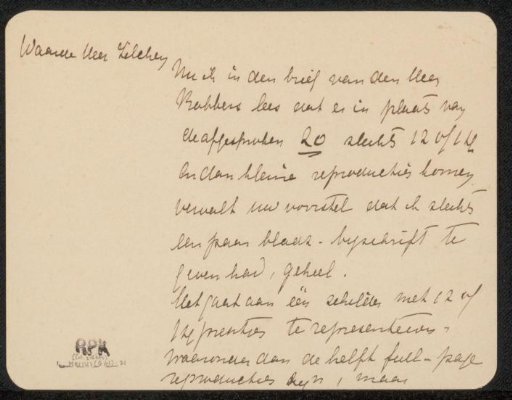 Waarde Heer Zilcken
Nu ik in den brief van den Heer
Robbers lees dat er in plaats van
de afgesproken 20 slechts 12 of 14
en dan kleine reproducties komen,
vervalt uw voorstel dat ik slechts
een paar bladz. bijschrift te
geven had, geheel.
Het gaat aan één schilder met 12 of
14 prentjes te representeeren,
waarvan dan de helft full-page
reproducties zijn, maar
RPK